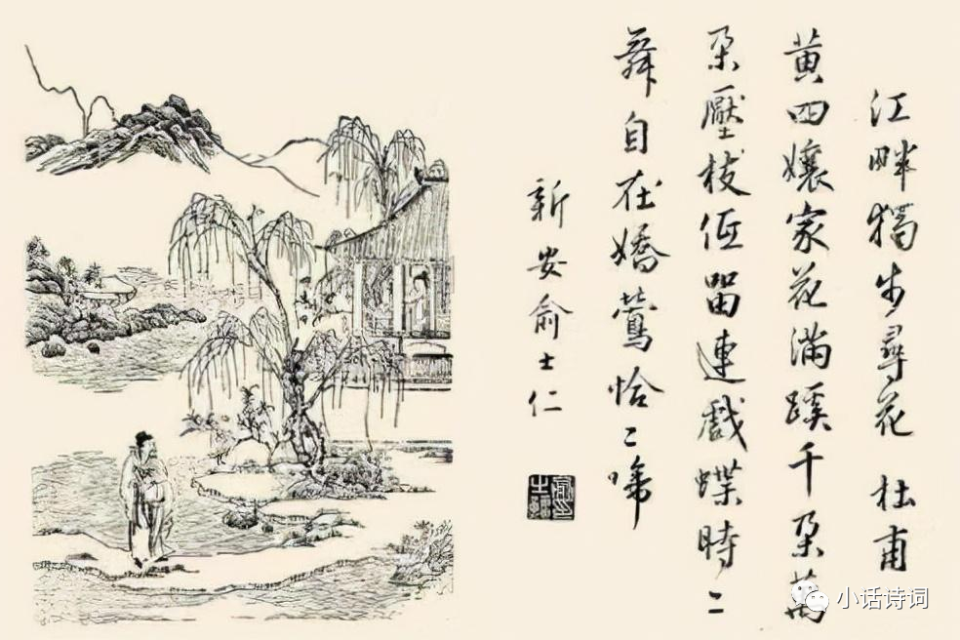 江畔獨步尋花 杜甫
黄四孃家花滿蹊千朶萬
朶壓枝低留連戲蝶時〻
舞自在嬌鶯恰〻啼
新安俞士仁
小话诗词